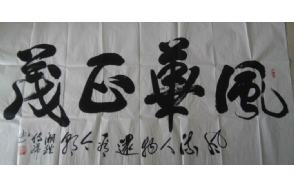 風華正茂
風流人物還看今朝